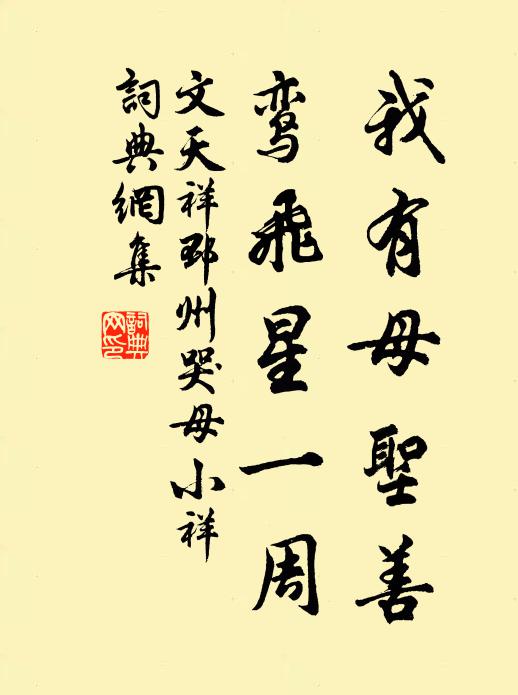 我有母聖善
鸾飛星一周
文天祥邳州哭母小祥
詞典網集
詞典
网印